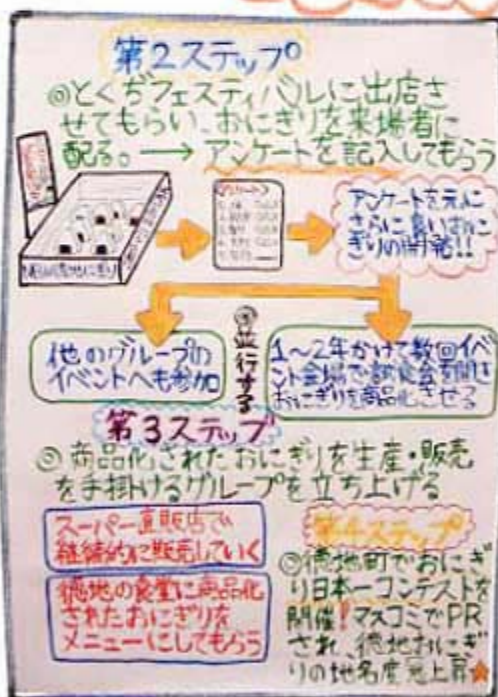 第2ステップ
◎とくぢフェスティバルに出店さ
せてもらい、おにぎりを来場者に
配る。→アンケートを記入してもらう
アンケートを元に
さらに良いおに
ぎりの開発!!
他のグループの
イベントへも参加
◎並行する
1～2年かけて数回イベ
ント会場で試食会を開き
おにぎりを商品化させる
第3ステップ
◎商品化されたおにぎりを生産・販売
を手掛けるグループを立ち上げる
スーパー直販店で
継続的に販売していく
徳地の食堂に商品化
されたおにぎりを
メニューにしてもらう
第4ステップ
◎徳地町でおにぎ
り日本一コンテストを
開催!マスコミでPR
され、徳地おにぎ
りの地名度急上昇★